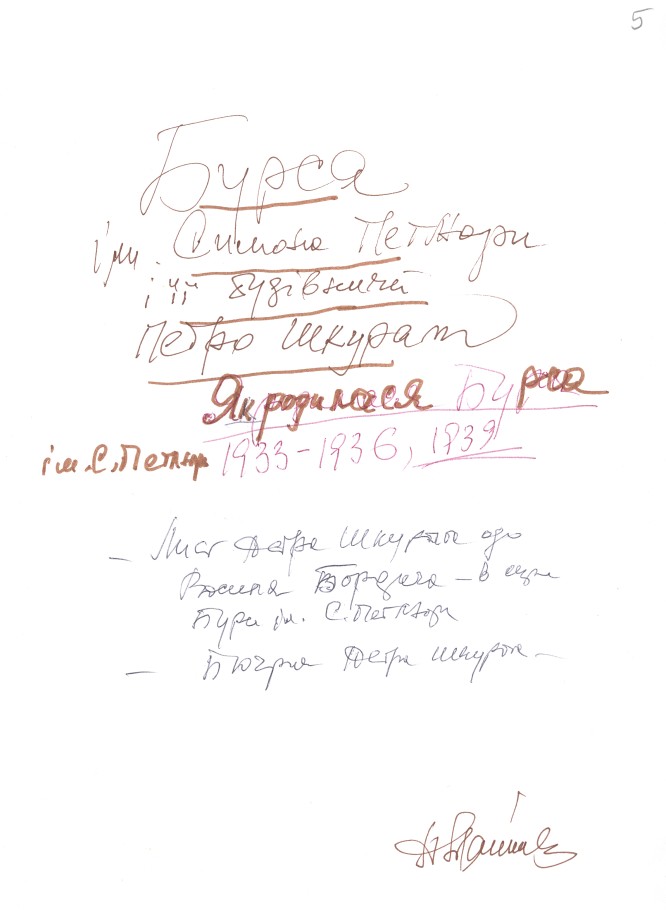 5
Бурса
ім. Симона Петлюри
і її будівничий
Петро Шкурат
Як родилася Бурса
ім. С. Петлюри 1933-1936, 1939
– Лист Петра Шкурата до
– в
Бурси ім. С. Петлюри
– Петра Шкурата –